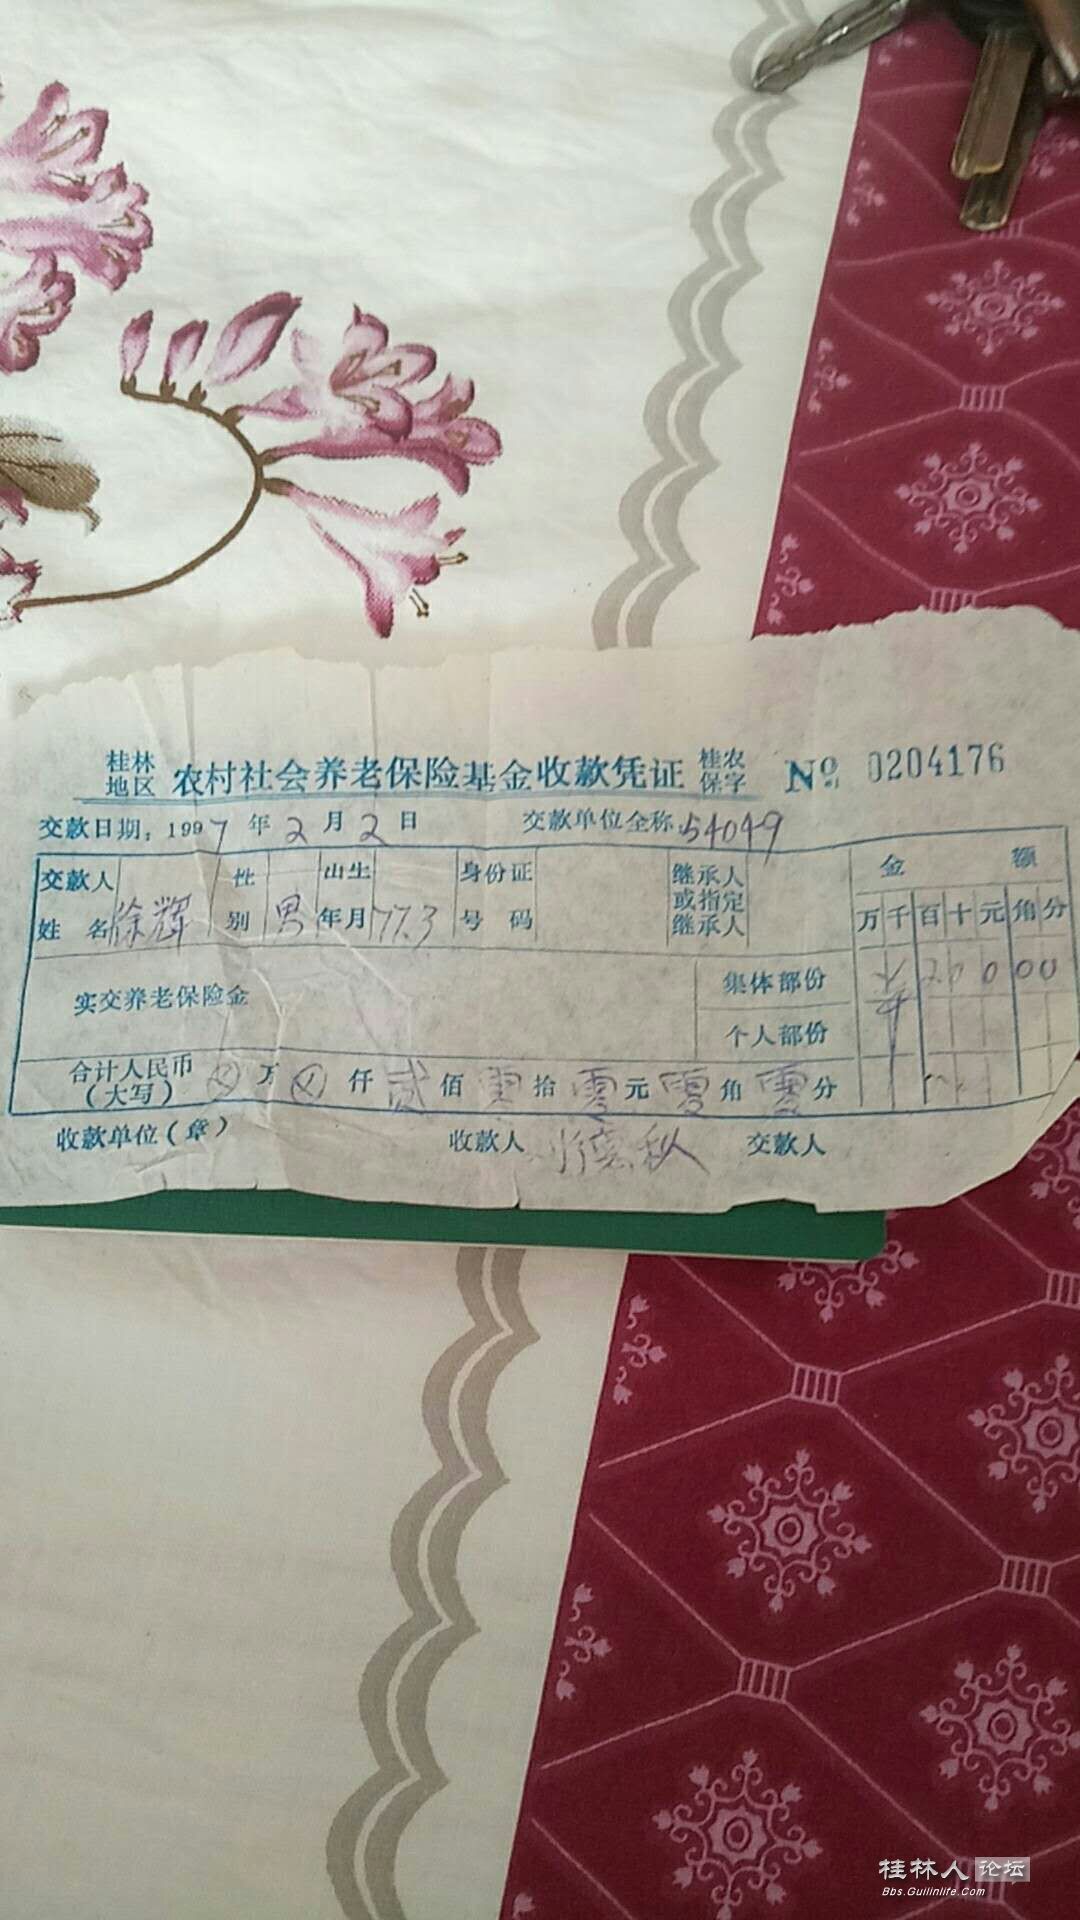 桂林地区 农村社会养老保险基金收款凭证 桂农保字 № 0204176
交款日期：1997年2月2日 交款单位全称：54049
交款人姓名 徐辉 性别 男 出生年月 77.3 身份证号码 继承人或指定继承人 金额
万 千 百 十 元 角 分
实交养老保险金 集体部份 2 0 0 0 0
个人部份
合计人民币（大写） ⊗万⊗仟贰佰零拾零元零角零分
收款单位（章） 收款人 秋 交款人
桂林人论坛
Bbs.Guilinlife.Com